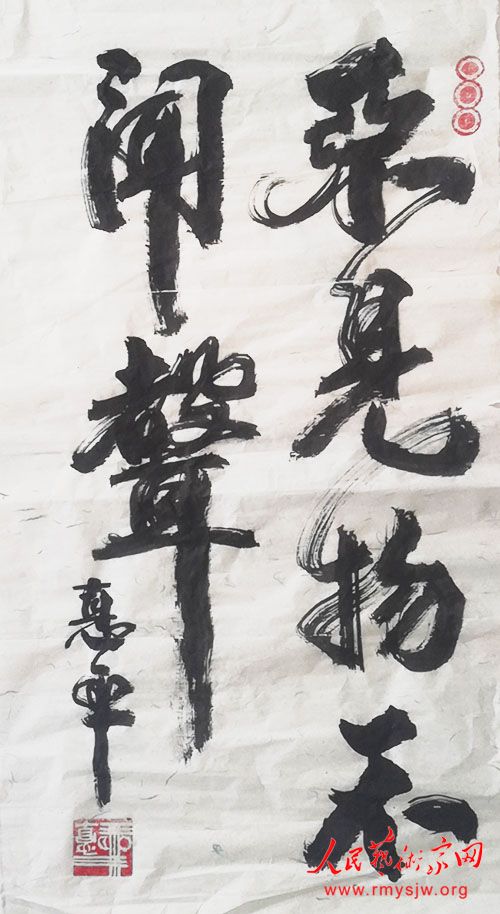 見物不
聞聲
惠平
人民藝術家网
www.rmysjw.org